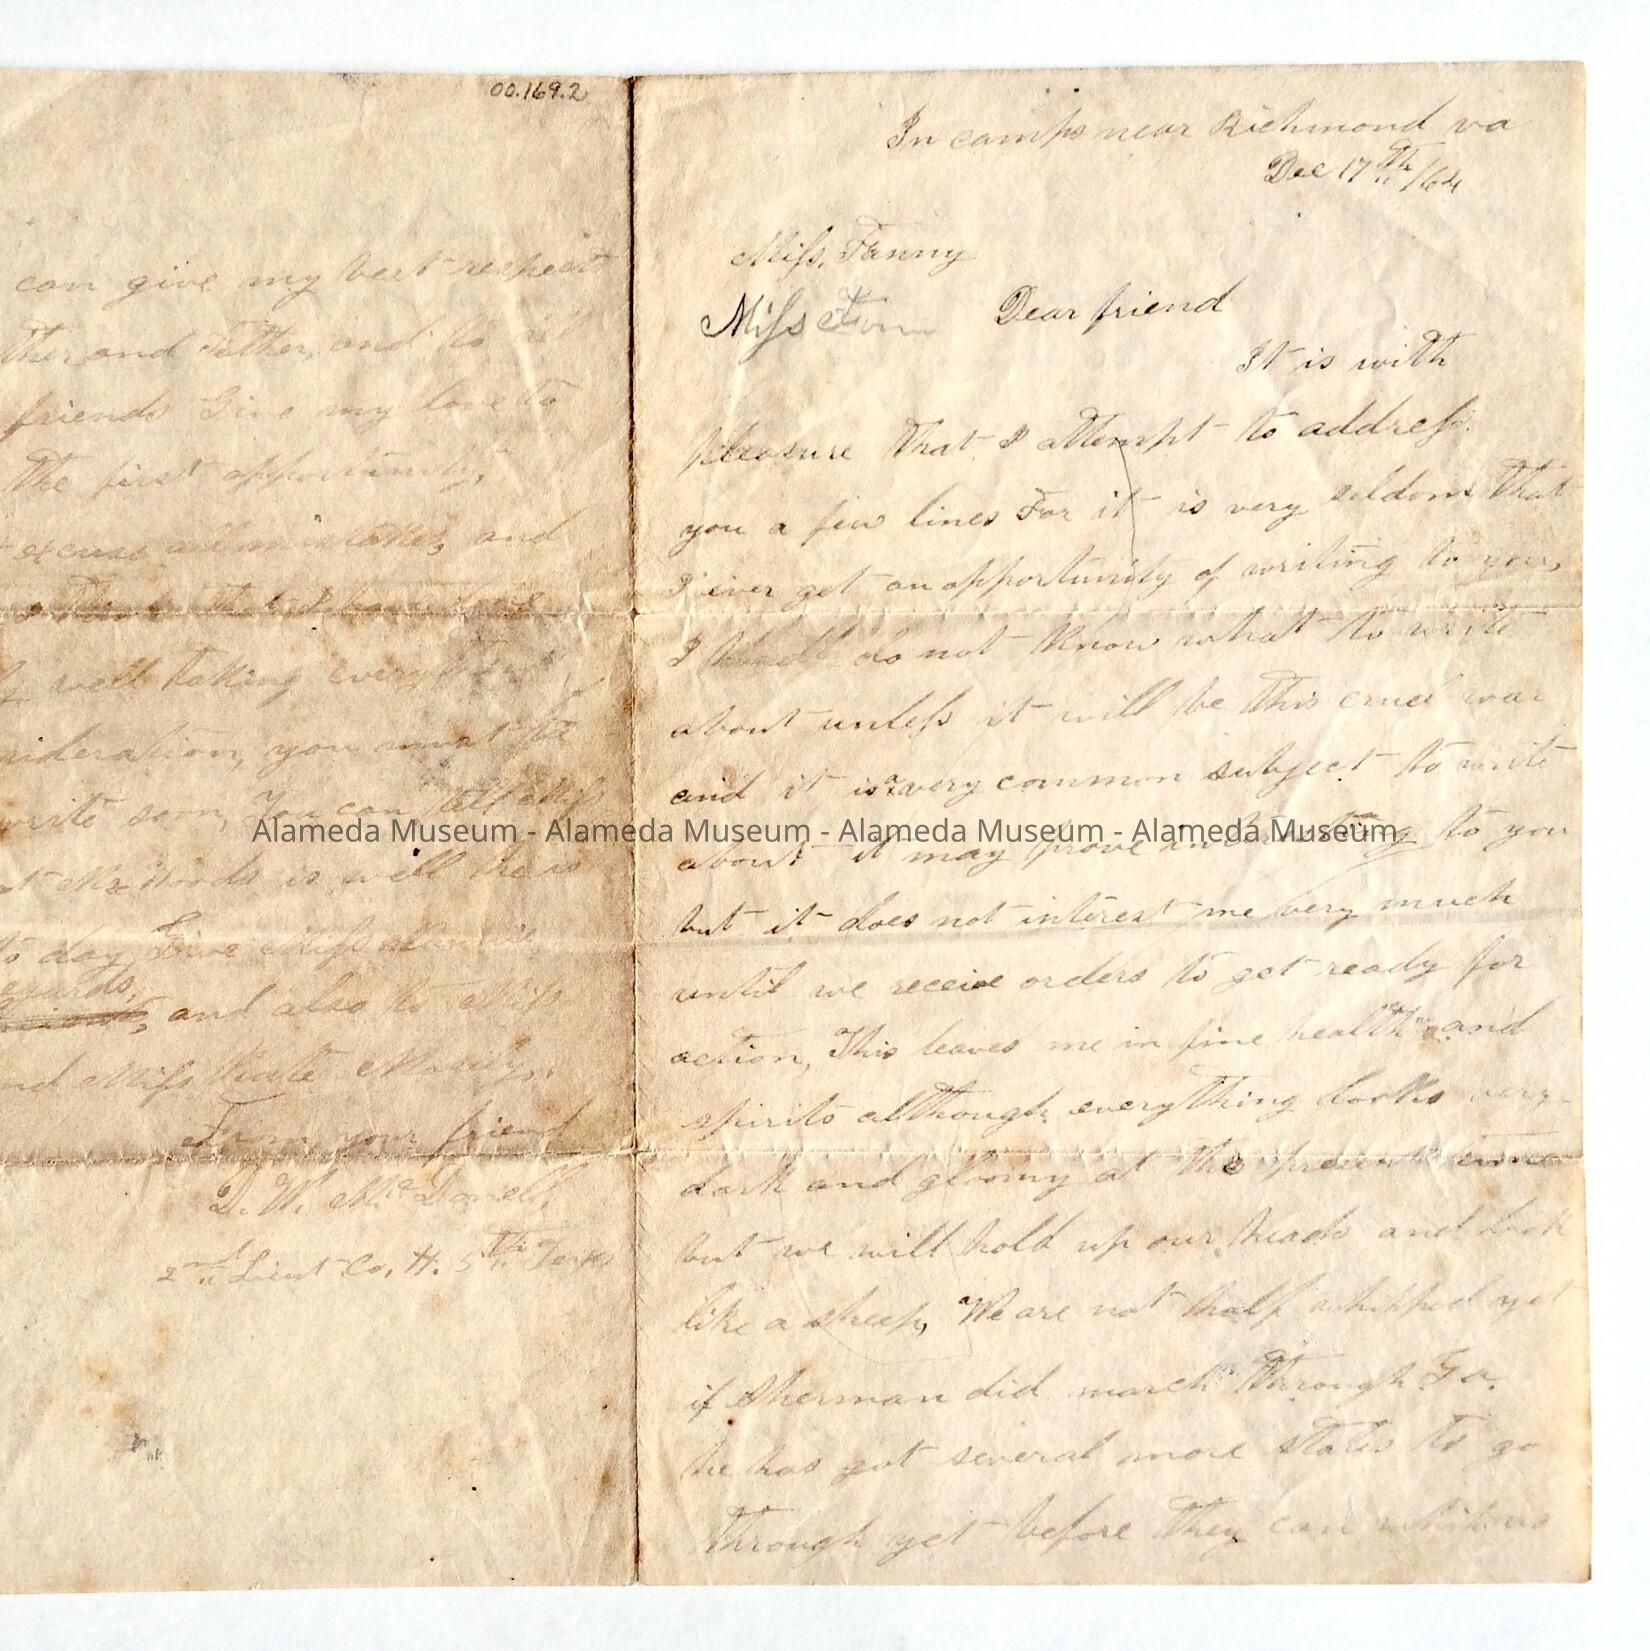 00.169.2
can give my best respects
and Father, and to
friends Give my love to
the first opportunity,
excuse all mistakes, and
well taking everything
you must
write soon, You can tell Miss
Mr Woods is well he is
to day, Give Miss
regards,
and also to Miss
Miss Kate
From your friend
D. W. McDonell,
2nd Lieut Co. H. 5th Texas
In camps near Richmond va
Dec 17th /64
Miss, Fanny
Miss Dear friend
It is with
pleasure that I attempt to address
you a few lines For it is very seldom that
I ever get an opportunity of writing to you,
I do not know what to write
about unless it will be this cruel war
and it is a very common subject to write
about it may prove interesting to you
but it does not interest me very much
until we receive orders to get ready for
action, This leaves me in fine health and
spirits although everything looks very
dark and gloomy at the present time
but we will hold up our heads and look
like a sheep, We are not half whipped yet
if Sherman did march through Ga.
he has got several more states to go
through yet before they can whip us
Alameda Museum - Alameda Museum - Alameda Museum - Alameda Museum